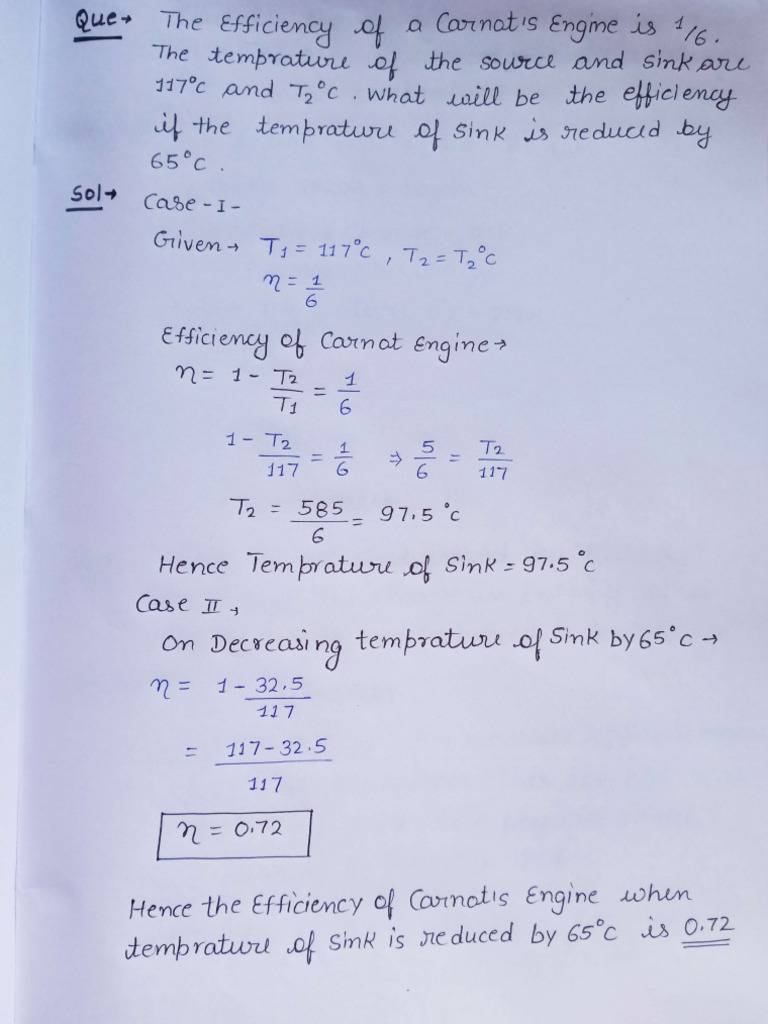 Que→ The Efficiency of a Carnat's Engine is 1/6.
The temprature of the source and sink are
117°c and T₂°c. What will be the efficiency
if the temprature of Sink is reduced by
65°c.
Sol→ Case-I-
Given→ T₁ = 117°c, T₂ = T₂°c
η = 1/6
Efficiency of Carnat Engine→
η = 1 - T₂/T₁ = 1/6
1 - T₂/117 = 1/6 ⇒ 5/6 = T₂/117
T₂ = 585/6 = 97.5 °c
Hence Temprature of Sink = 97.5 °c
Case II→
On Decreasing temprature of Sink by 65°c→
η = 1 - 32.5/117
= 117-32.5/117
η = 0.72
Hence the Efficiency of Carnat's Engine when
temprature of Sink is reduced by 65°c is 0.72